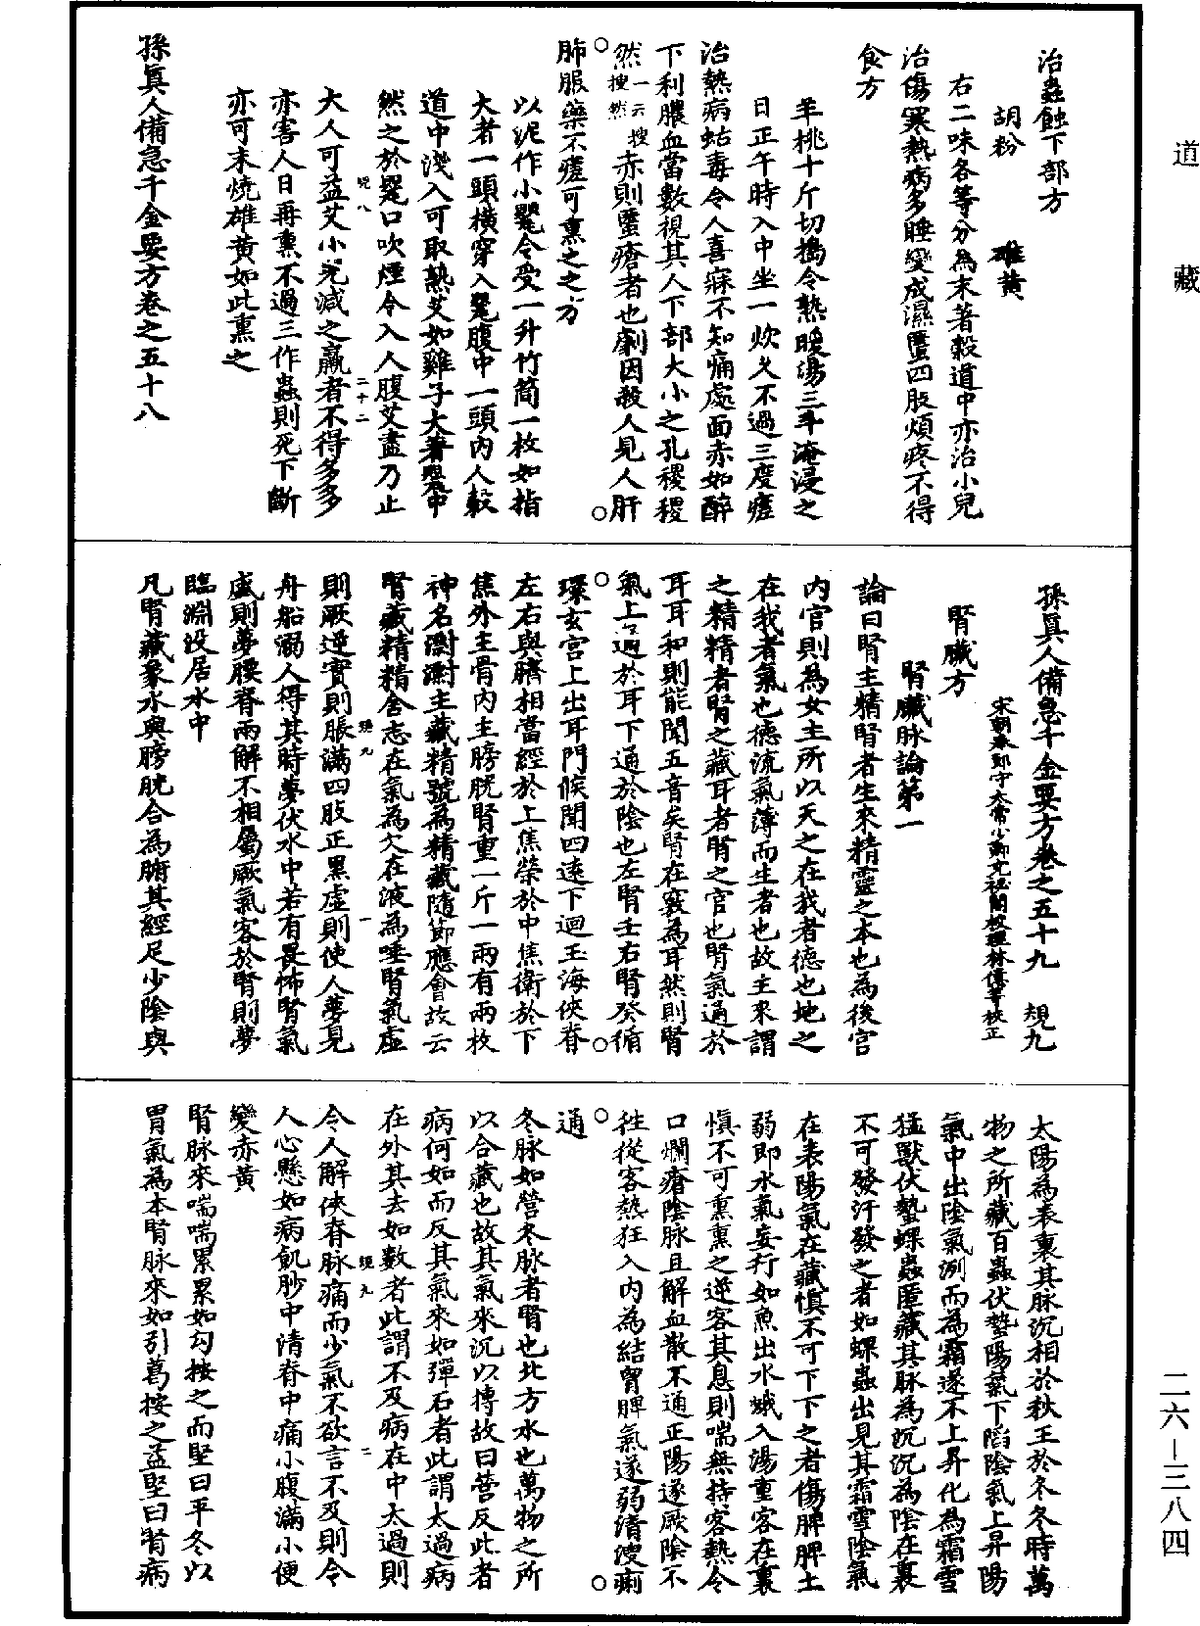 道藏
治蟲蝕下部方
胡粉　雄黃
右二味各等分為末著穀道中亦治小兒
治傷寒熱病多睡變成濕䘌四肢煩疼不得
食方
羊桃十斤切擣令熟暖湯三斗淹浸之
日正午時入中坐一炊久不過三度瘥
治熱病蛄毒令人喜寐不知痛處面赤如醉
下利膿血當數視其人下部大小之孔稷稷
然一云搜搜然赤則䘌瘡者也劇因殺人見人肝
肺服藥不瘥可熏之之方
以泥作小甖令受一升竹筒一枚如指
大者一頭橫穿入甖腹中一頭內人穀
道中淺入可取熟艾如雞子大著甖中
然之於甖口吹煙令入人腹艾盡乃止
規八　二十二
大人可益艾小兒減之羸者不得多多
亦害人日再熏不過三作蟲則死下斷
亦可末燒雄黃如此熏之
孫真人備急千金要方卷之五十八
孫真人備急千金要方卷之五十九　規九
宋朝奉郎守太常少卿充祕閣校理林億等校正
腎臟方
腎臟脉論第一
論曰腎主精腎者生來精靈之本也為後宮
內官則為女主所以天之在我者德也地之
在我者氣也德流氣薄而生者也故生來謂
之精精者腎之藏耳者腎之官也腎氣通於
耳耳和則能聞五音矣腎在竅為耳然則腎
氣上通於耳下通於陰也左腎壬右腎癸循
環玄宮上出耳門候聞四遠下迴玉海俠脊
左右與臍相當經於上焦榮於中焦衛於下
焦外主骨內主膀胱腎重一斤一兩有兩枚
神名㴰㴰主藏精號為精藏隨節應會故云
腎藏精精舍志在氣為欠在液為唾腎氣虛
規九　一
則厥逆實則脹滿四肢正黑虛則使人夢見
舟船溺人得其時夢伏水中若有畏怖腎氣
盛則夢腰脊兩解不相屬厥氣客於腎則夢
臨淵沒居水中
凡腎藏象水與膀胱合為腑其經足少陰與
太陽為表裏其脉沉相於秋王於冬冬時萬
物之所藏百蟲伏蟄陽氣下陷陰氣上昇陽
氣中出陰氣洌而為霜遂不上昇化為霜雪
猛獸伏蟄蜾蟲匿藏其脉為沉沉為陰在裏
不可發汗發之者如蜾蟲出見其霜雪陰氣
在表陽氣在藏慎不可下下之者傷脾脾土
弱即水氣妄行如魚出水蛾入湯重客在裏
慎不可熏熏之逆客其息則喘無持客熱令
口爛瘡陰脉且解血散不通正陽遂厥陰不
往從客熱狂入內為結胷脾氣遂弱清溲痢
通
冬脉如營冬脉者腎也北方水也萬物之所
以合藏也故其氣來沉以摶故曰營反此者
病何如而反其氣來如彈石者此謂太過病
在外其去如數者此謂不及病在中太過則
規九　二
令人解㑊脊脉痛而少氣不欲言不及則令
人心懸如病飢䏚中清脊中痛小腹滿小便
變赤黃
腎脉來喘喘累累如勾按之而堅曰平冬以
胃氣為本腎脉來如引葛按之益堅曰腎病
二六－三八四